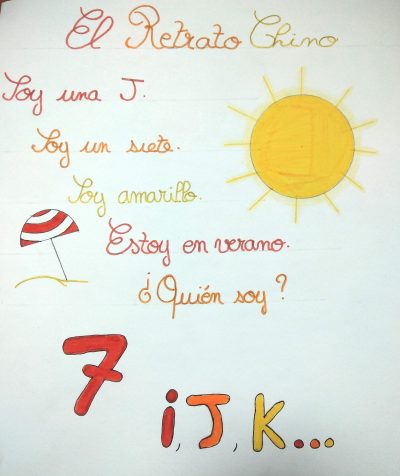 El Retrato Chino
Soy una J.
Soy un siete.
Soy amarillo.
Estoy en verano.
¿Quién soy?
7
i, J, K...